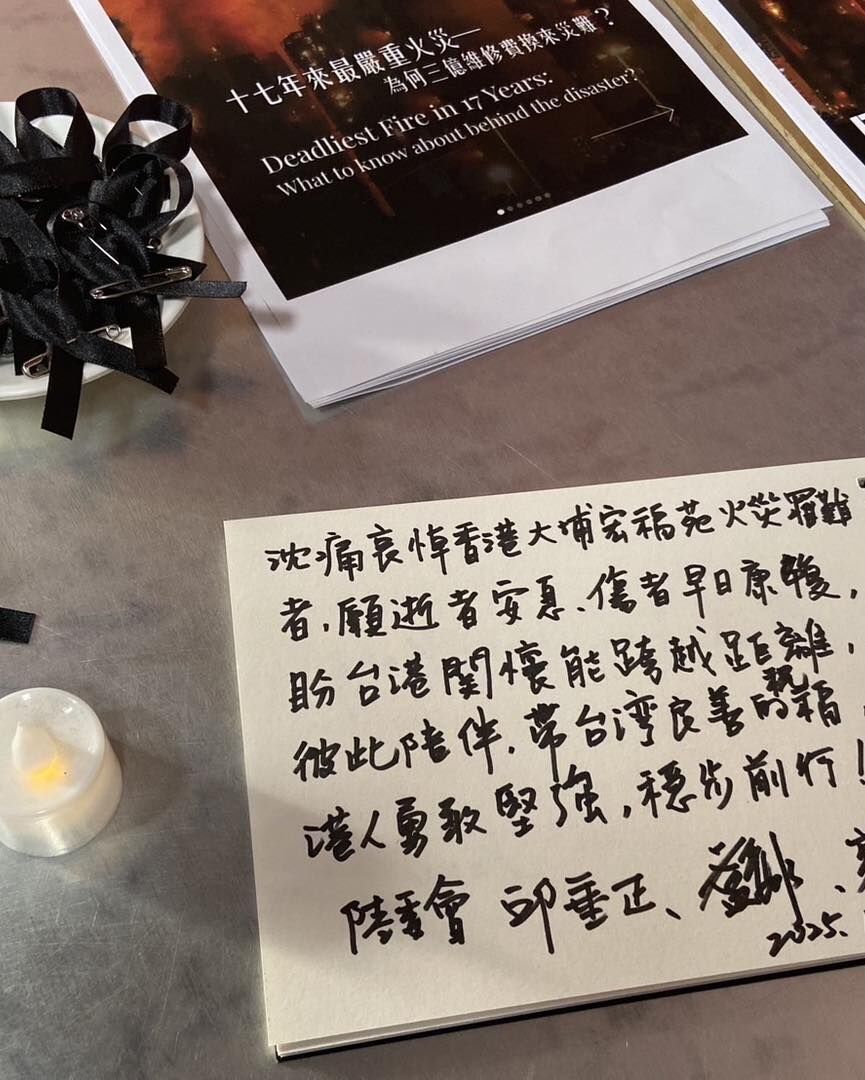 十七年來最嚴重火災—
為何三億維修費換來災難？
Deadliest Fire in 17 Years:
What to know about behind the disaster?
沈痛哀悼香港大埔宏福苑火災罹難
者，願逝者安息、傷者早日康復，
盼台港關懷能跨越距離，
彼此陪伴，帶台灣良善的祝福，
港人勇敢堅強，穩步前行！
陸委會 邱垂正、
2025.